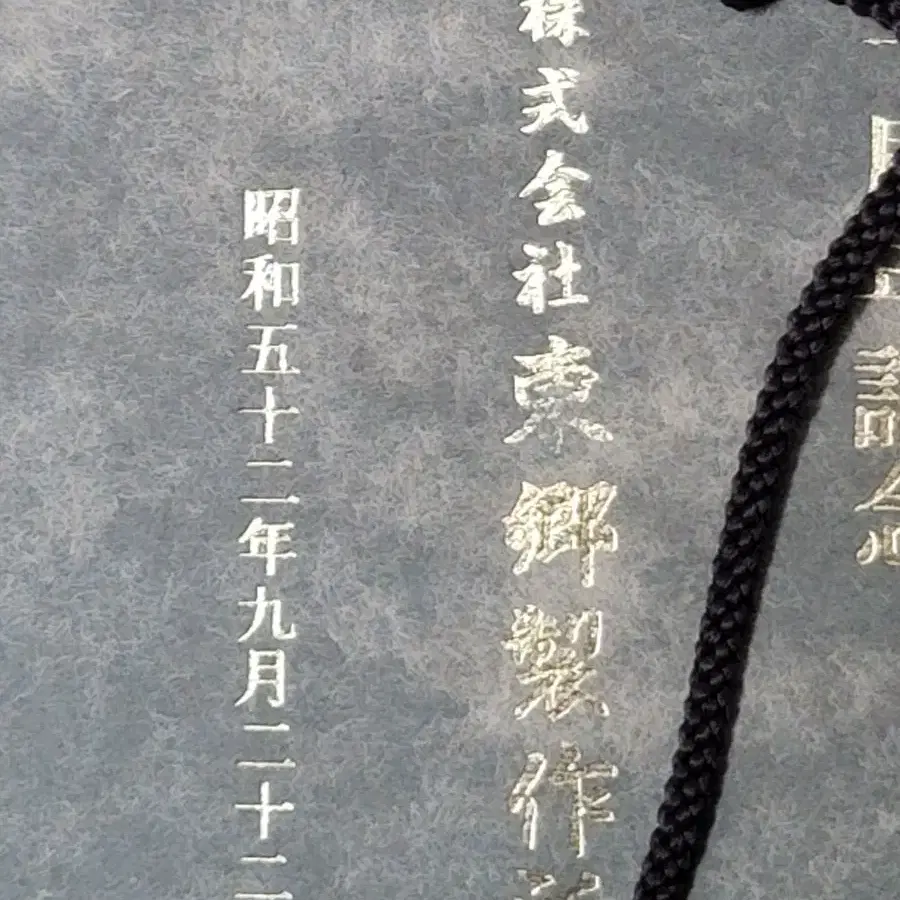 株式会社東郷製作
昭和五十二年九月二十二